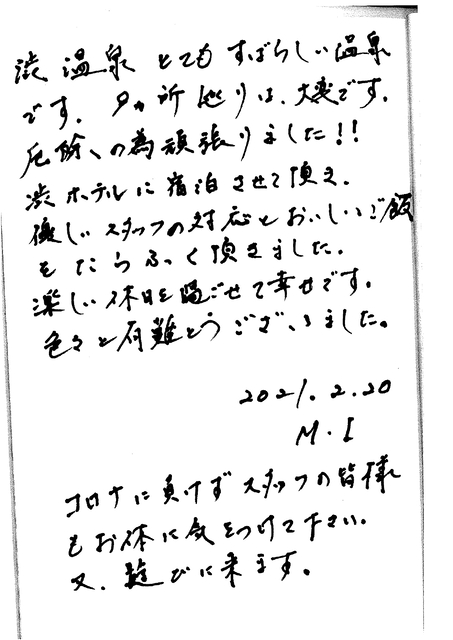 渋温泉とてもすばらしい温泉
です。夕ヵ所巡りは、大変です。
厄除への為頑張りました!!
渋ホテルに宿泊させて頂き、
優しいスタッフの対応とおいしいご飯
をたらふく頂きました。
楽しい休日を過ごせて幸せです。
色々と有難とうございました。
2021.2.20
M.I
コロナに負けずスタッフの皆様
もお体に気をつけて下さい。
又、遊びに来ます。